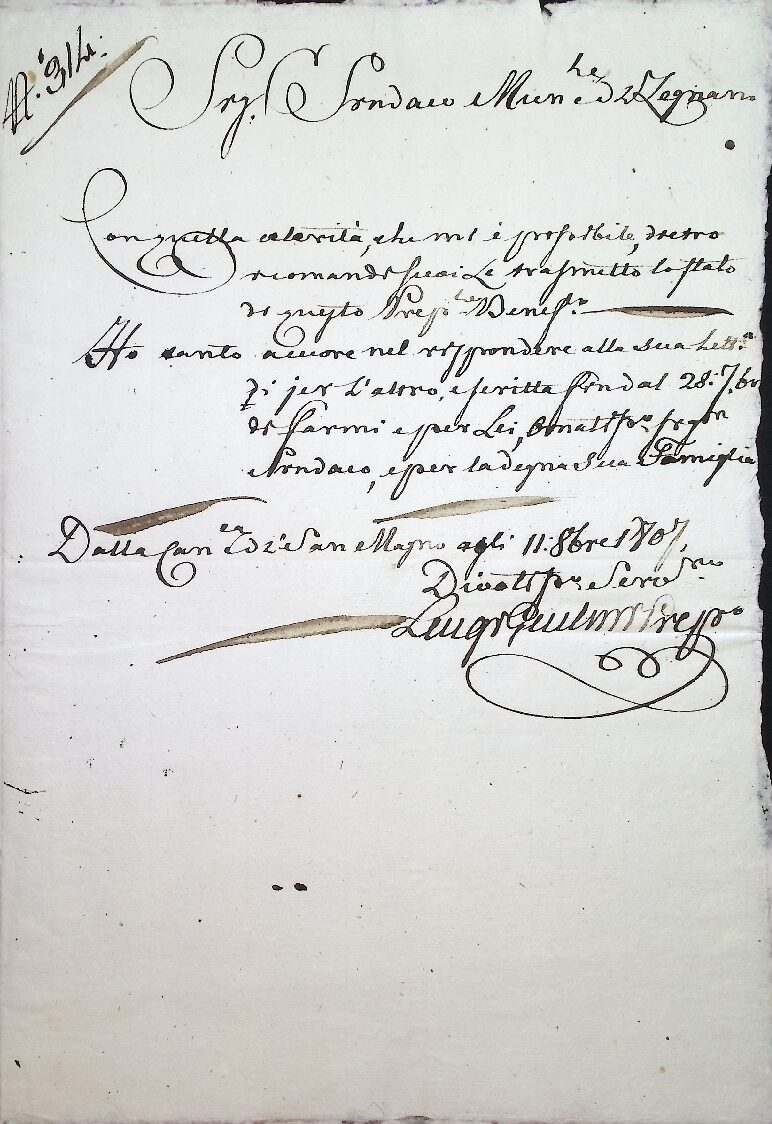 N.° 314.
Sig.r Sindaco Mun.le di Legnano
Con quella celerità, che mi è possibile, dietro
i comandi suoi Le trasmetto lo stato
di questo Prep.le Benef.o
Ho tanto a cuore nel rispondere alla sua Lett.a
di jer l'altro, e scritta sin dal 28: 7.bre
di e per Lei, sig.r
Sindaco, e per la degna sua Famiglia
Dalla Can.ca di San Magno agli 11: 8bre 1807,
Div.mo Serv.re
Luigi Prep.o